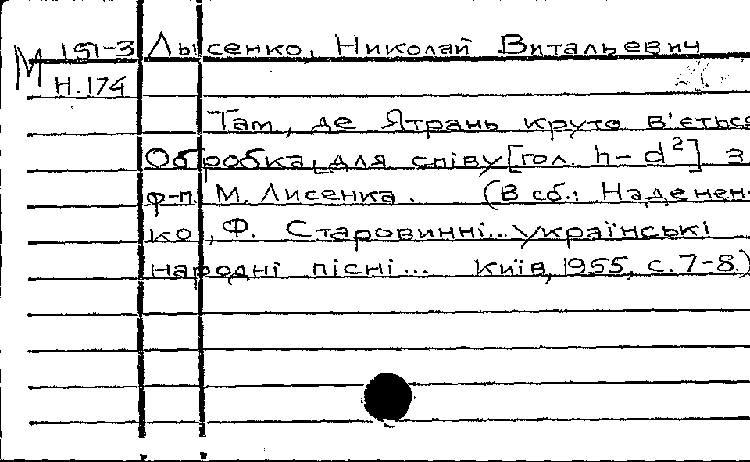 М 151-3 Лысенко, Николай Витальевич
Н.174
Там, де Ятрань круто в'ється
Обробка для співу [гол. h-d²] з
ф-п. М. Лисенка. (В сб.: Наденен-
ко, Ф. Старовинні.. українські
народні пісні... Київ, 1955, с.7-8.)